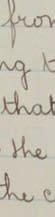 from
ng t
that
the
he c